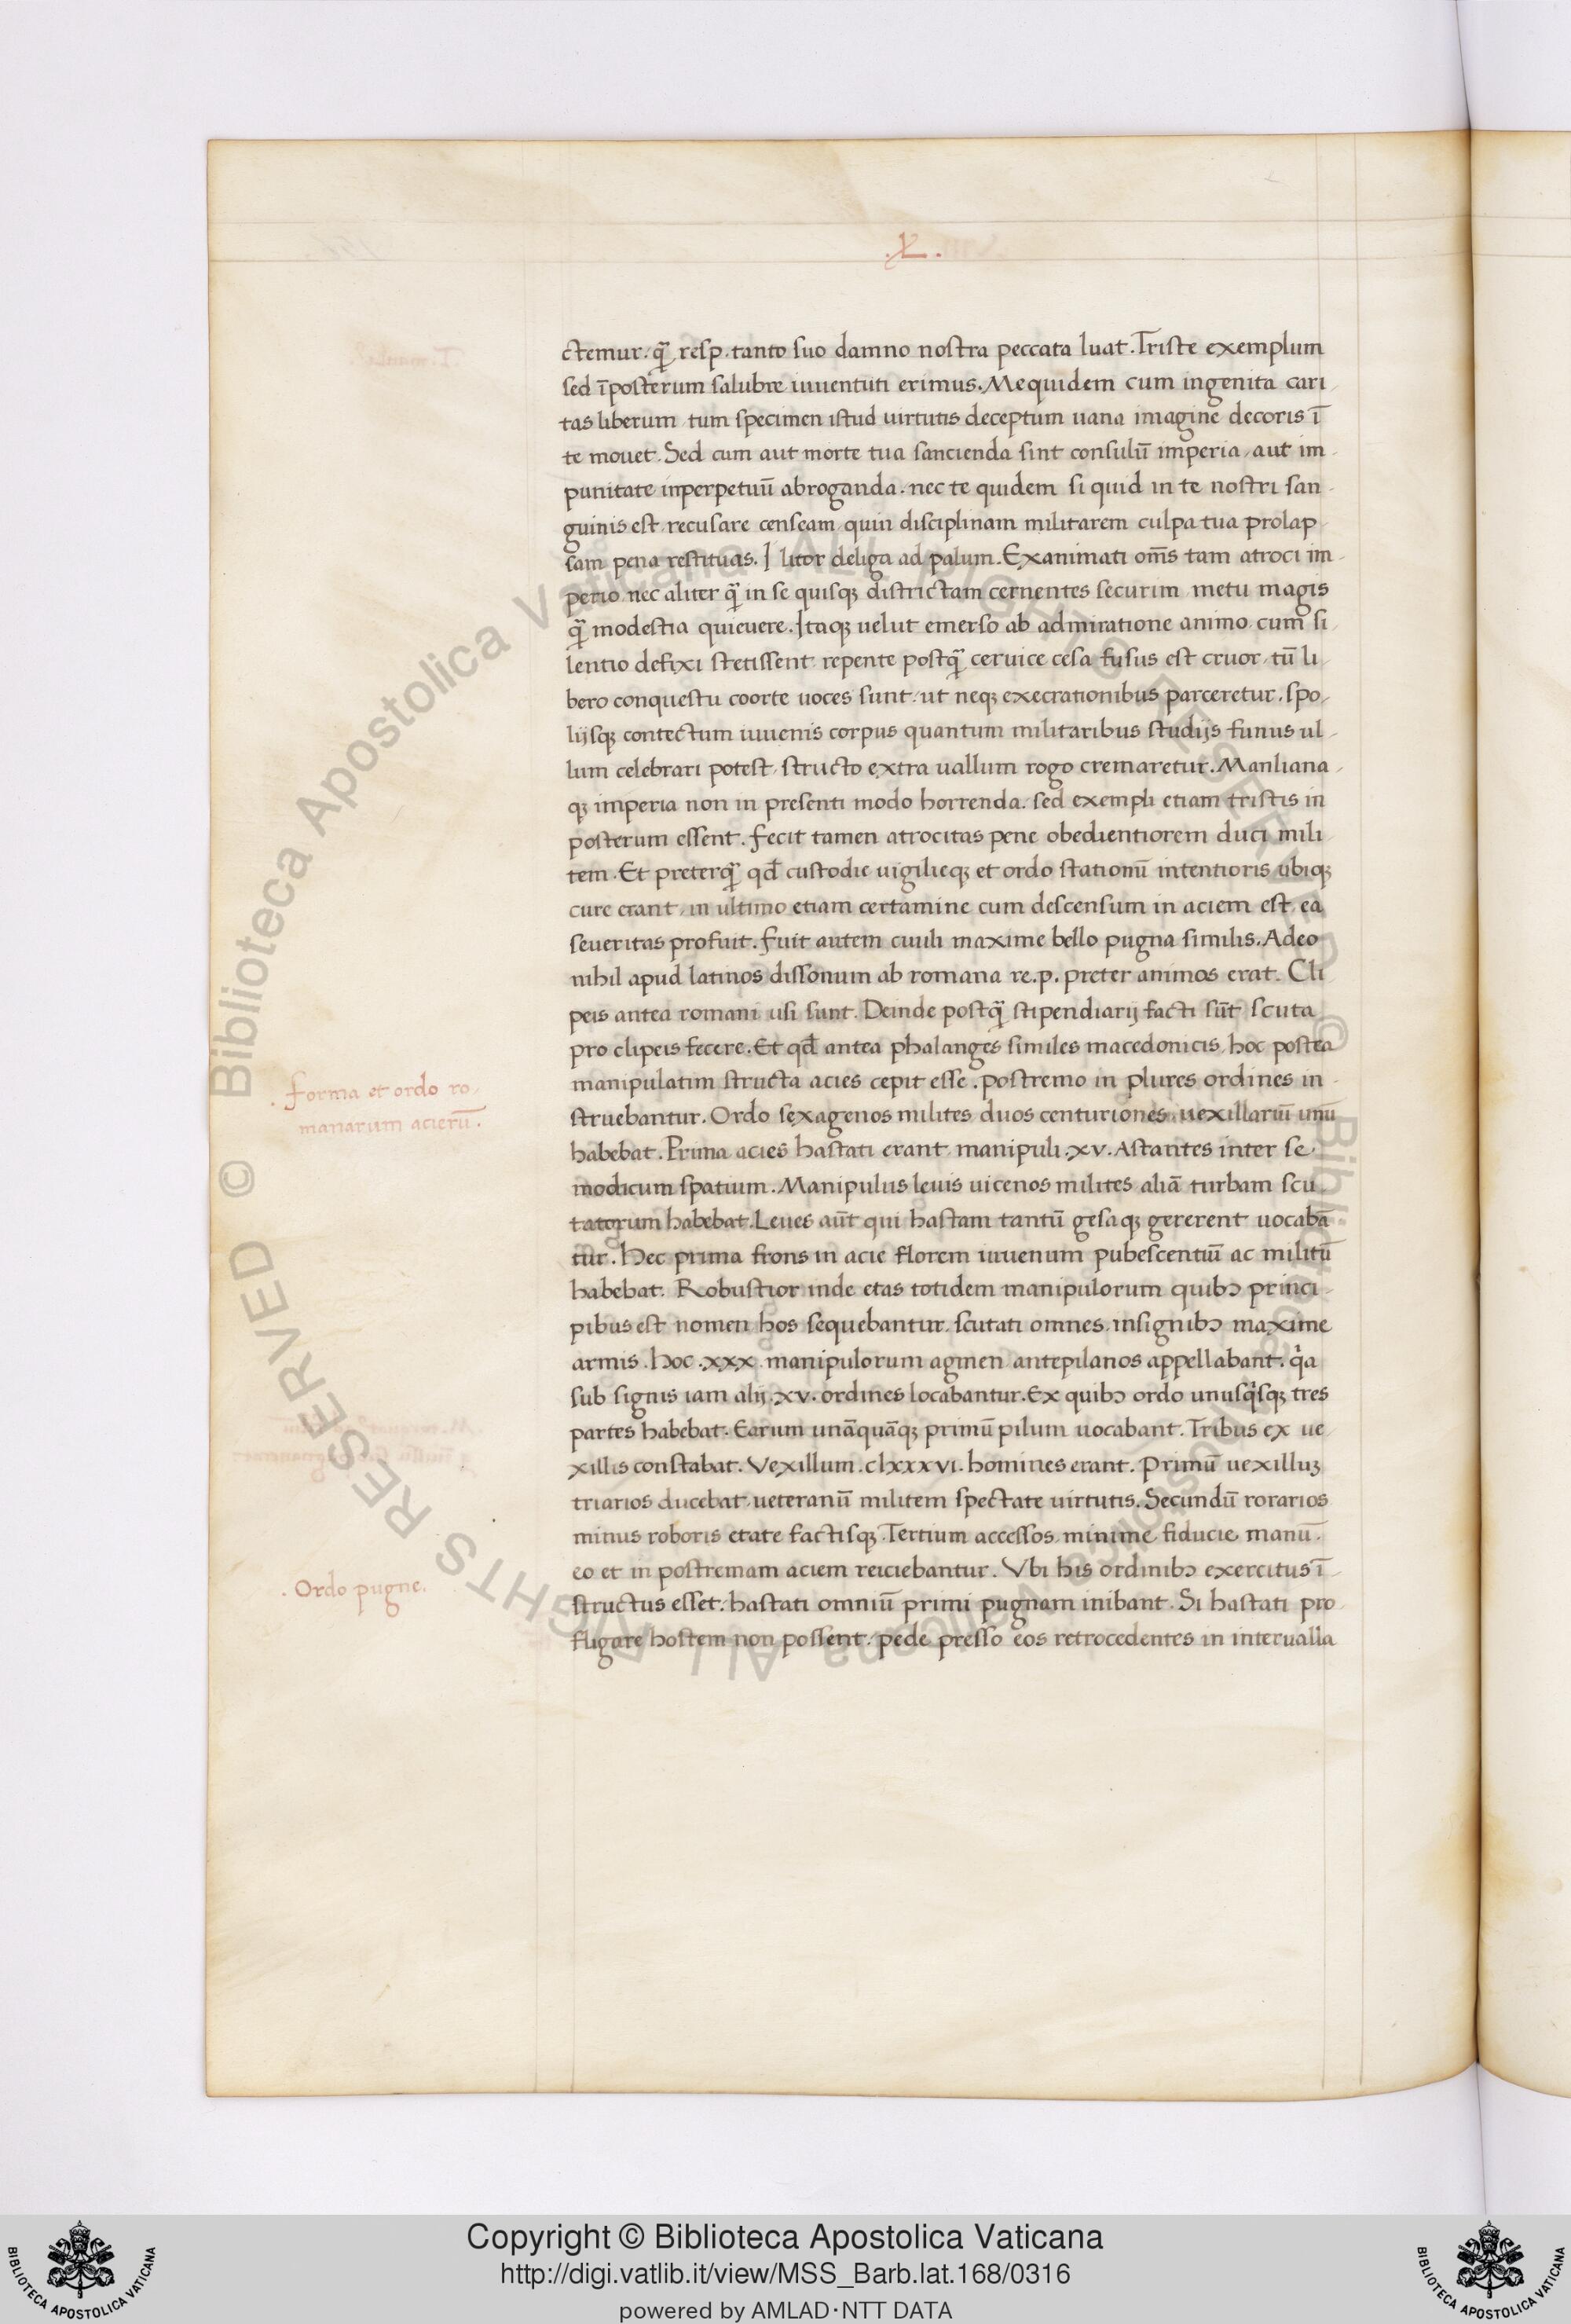 .L.
ctemur. q̄ resp. tanto suo damno nostra peccata luat. Triste exemplum
sed ī posterum salubre iuuentuti erimus. Me quidem cum ingenita cari
tas liberum tum specimen istud uirtutis deceptum uana imagine decoris ī
te mouet. Sed cum aut morte tua sancienda sint consulū imperia, aut im
punitate inperpetuū abroganda. nec te quidem si quid in te nostri san
guinis est recusare censeam quin disciplinam militarem culpa tua prolap
sam pena restituas. I litor deliga ad palum. Exanimati om̄s tam atroci im
perio nec aliter q̄ in se quisqꝫ districtam cernentes securim metu magis
q̄ modestia quieuere. Itaqꝫ uelut emerso ab admiratione animo cum si
lentio defixi stetissent repente postq̄ ceruice cesa fusus est cruor, tū li
bero conquestu coorte uoces sunt, ut neqꝫ execrationibus parceretur. spo
lijsqꝫ contectum iuuenis corpus quantum militaribus studijs funus ul
lum celebrari potest, structo extra uallum rogo cremaretur. Manliana
qꝫ imperia non in presenti modo horrenda. sed exempli etiam tristis in
posterum essent. fecit tamen atrocitas pene obedientiorem duci mili
tem. Et preterq̄ qđ custodie uigilieqꝫ et ordo stationū intentioris ubiqꝫ
cure erant, in ultimo etiam certamine cum descensum in aciem est, ea
seueritas profuit. fuit autem ciuili maxime bello pugna similis. Adeo
nihil apud latinos dissonum ab romana re.p. preter animos erat. Cli
peis antea romani usi sunt. Deinde postq̄ stipendiarij facti sūt scuta
pro clipeis fecere. Et qđ antea phalanges similes macedonicis, hoc postea
manipulatim structa acies cepit esse. postremo in plures ordines in
. forma et ordo ro
manarum acierū.
struebantur. Ordo sexagenos milites duos centuriones uexillariū unū
habebat. Prima acies hastati erant manipuli .xv. Astantes inter se
modicum spatium. Manipulus leuis uicenos milites aliā turbam scu
tatorum habebat. Leues aūt qui hastam tantū gesaqꝫ gererent uocabā
tur. Hec prima frons in acie florem iuuenum pubescentiū ac militū
habebat. Robustior inde etas totidem manipulorum quibꝰ princi
pibus est nomen hos sequebantur. scutati omnes. insignibꝰ maxime
armis. hoc .xxx. manipulorum agmen antepilanos appellabant. qͥa
sub signis iam alij .xv. ordines locabantur. Ex quibꝰ ordo unusqͥsqꝫ tres
partes habebat. Earum unāquāqꝫ primū pilum uocabant. Tribus ex ue
xillis constabat. Vexillum .clxxxvi. homines erant. Primū uexilluꝫ
triarios ducebat ueteranū militem spectate uirtutis. Secundū rorarios
minus roboris etate factisqꝫ. Tertium accessos minime fiducie manū.
eo et in postremam aciem reiciebantur. Vbi his ordinibꝰ exercitus ī
. Ordo pugne.
structus esset. hastati omniū primi pugnam inibant. Si hastati pro
fligare hostem non possent, pede presso eos retrocedentes in interualla
© Biblioteca Apostolica Vaticana ALL RIGHTS RESERVED
© Biblioteca Apostolica Vaticana ALL RIGHTS RESERVED
BIBLIOTECA APOSTOLICA VATICANA
Copyright © Biblioteca Apostolica Vaticana
http://digi.vatlib.it/view/MSS_Barb.lat.168/0316
powered by AMLAD·NTT DATA
BIBLIOTECA APOSTOLICA VATICANA